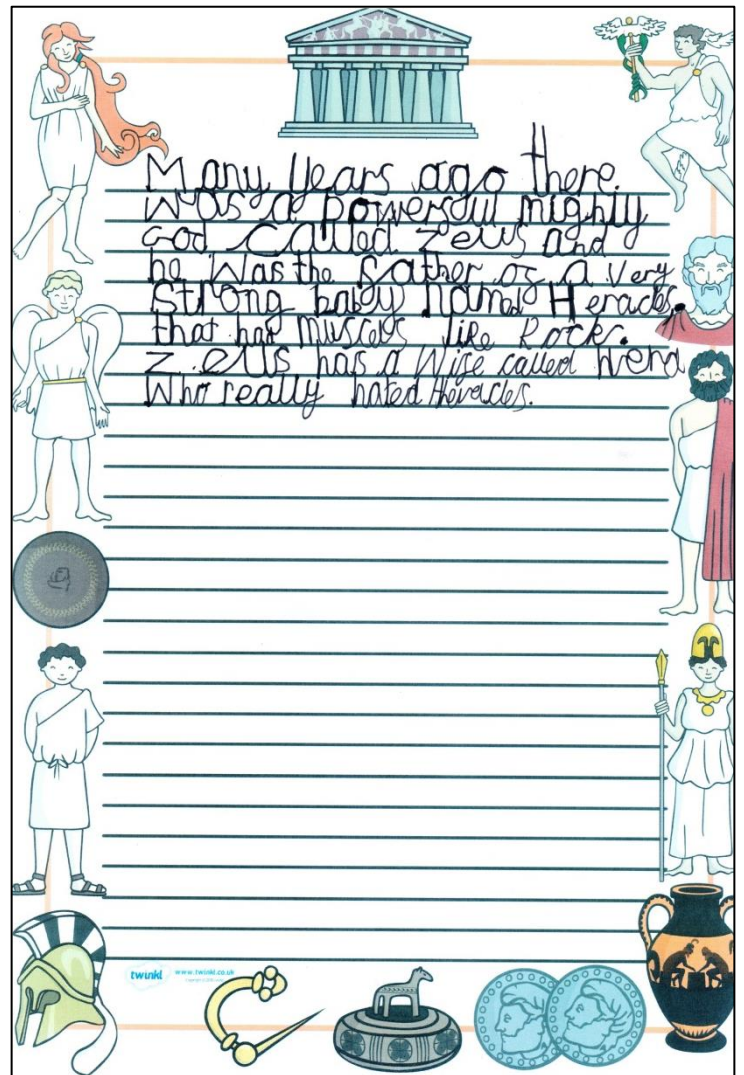 Many Years ago there
was a powersul mighty
God called Zeus and
he was the father of a very
Strong baby named Heracles,
that had muscels like Rocks.
Zeus has a wife called Hera
Who really hated Heracles.
twinkl www.twinkl.co.uk